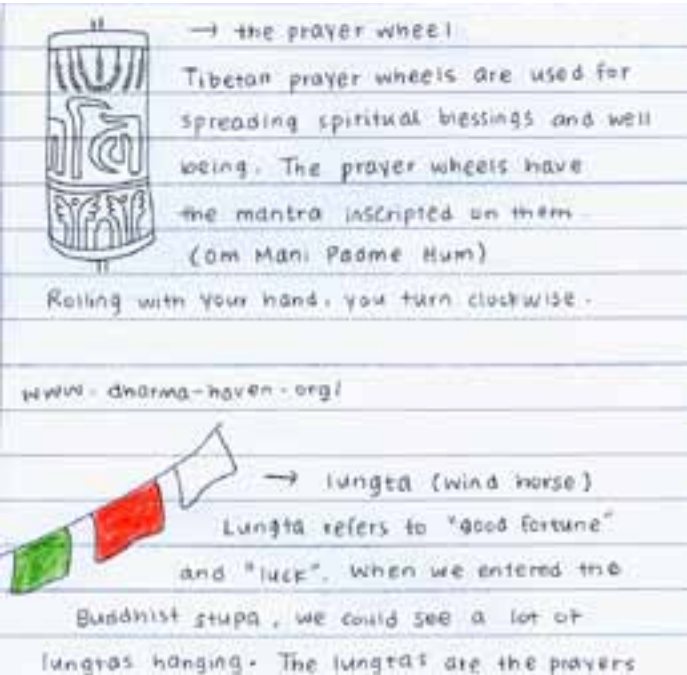 → the prayer wheel
Tibetan prayer wheels are used for
spreading spiritual blessings and well
being. The prayer wheels have
the mantra inscripted on them.
(Om Mani Padme Hum)
Rolling with your hand, you turn clockwise.
www.dharma-haven.org/
→ lungta (wind horse)
Lungta refers to "good fortune"
and "luck". When we entered the
Buddhist stupa, we could see a lot of
lungtas hanging. The lungtas are the prayers